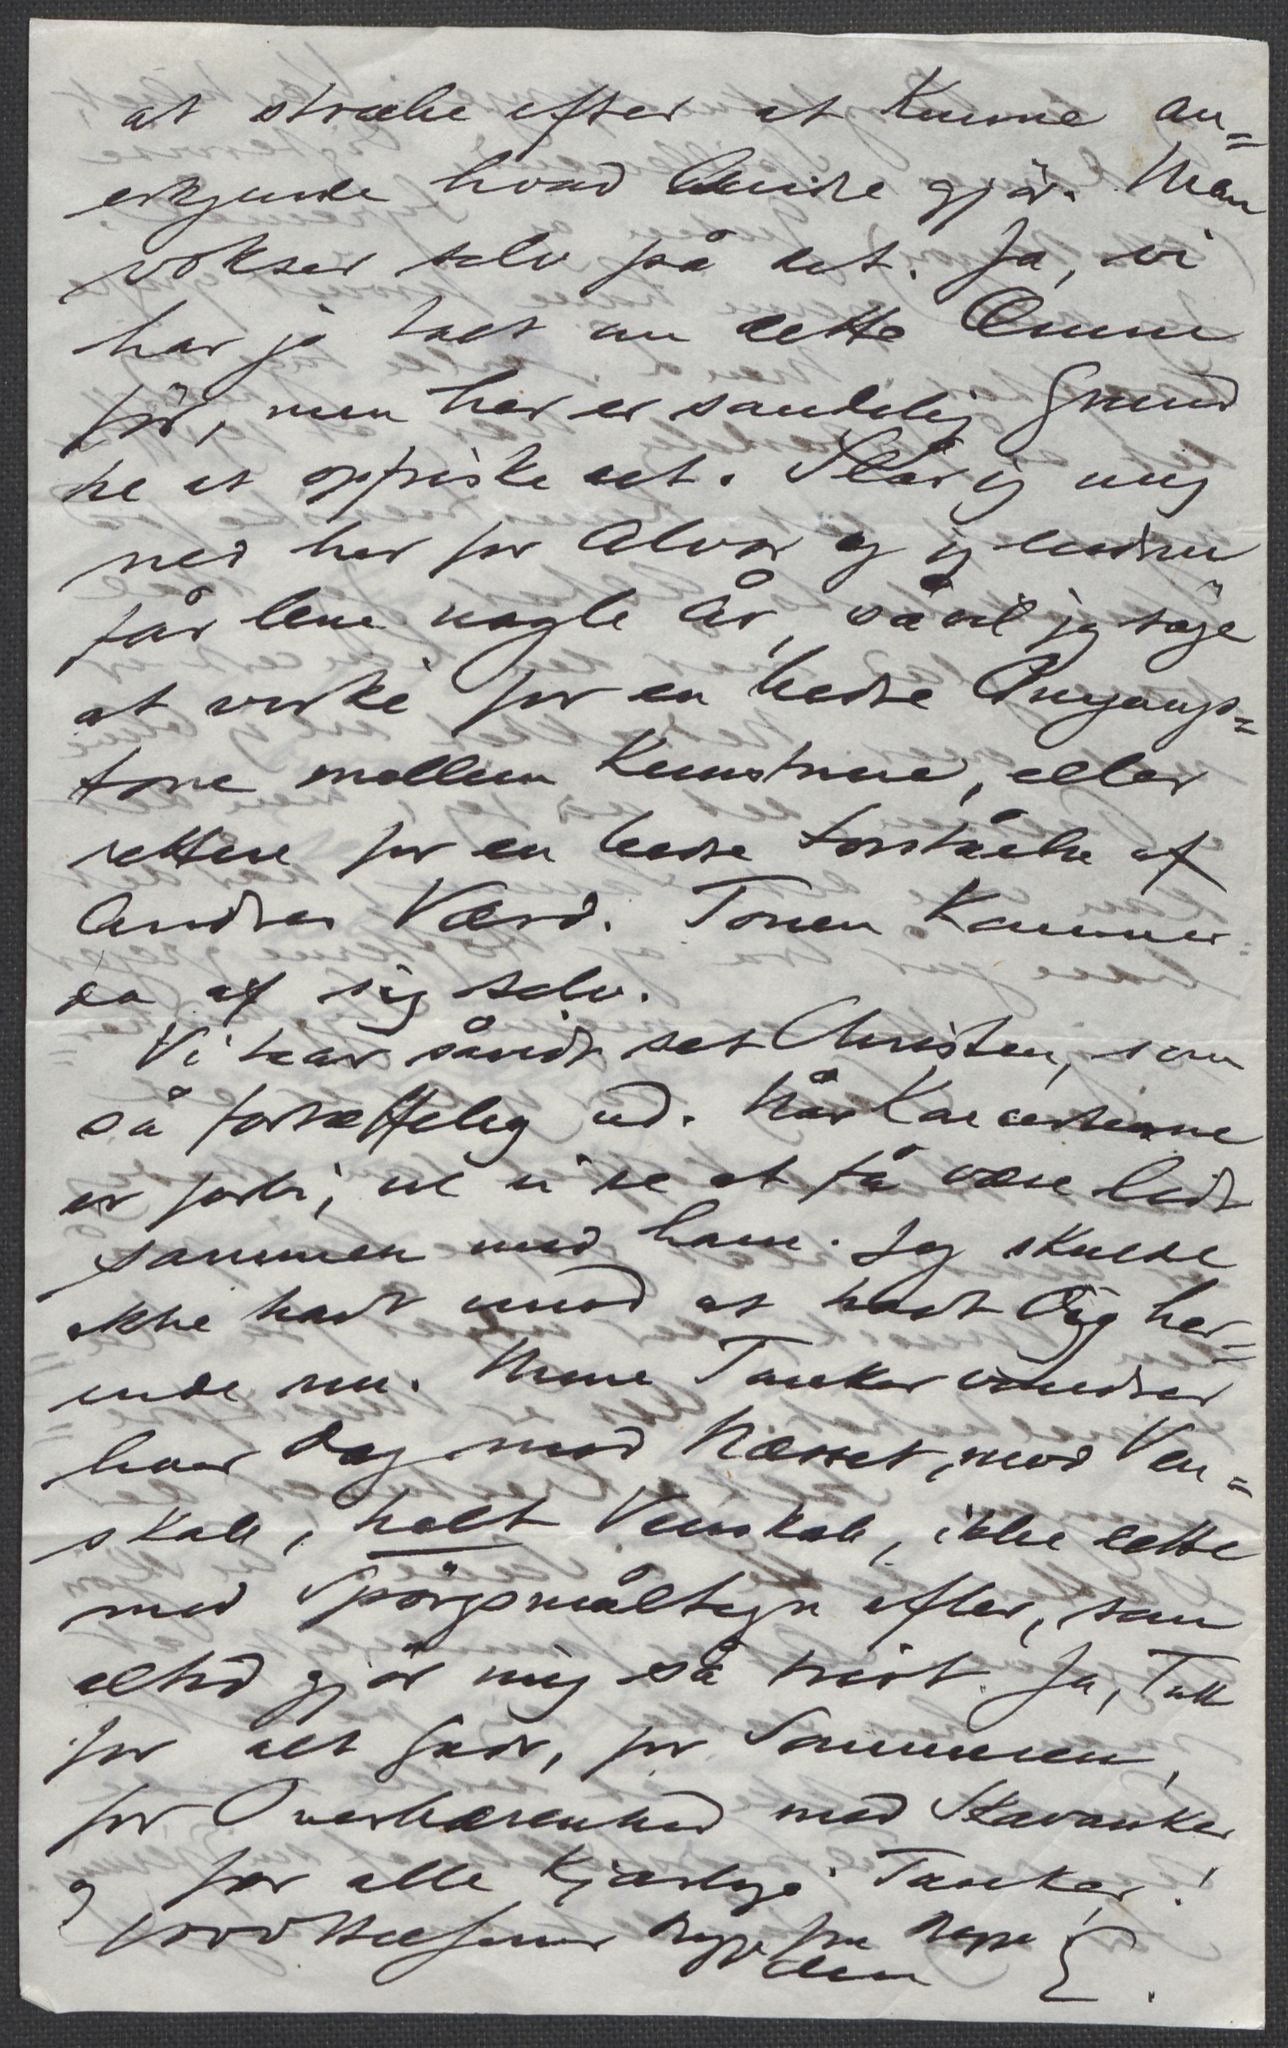 at stræbe efter at kunne an=
erkjende hvad Andre gjör. Man
vokser selv på det. Ja, vi
har jo talt om dette Emne
för, men her er sandelig Grund
til at opfriske det. Slår jeg mig
ned her for Alvor og jeg endnu
får leve nogle År, så vil jeg söge
at virke for en bedre Omgangs=
tone mellem Kunstnere, eller
rettere for en bedre Forståelse af
Andres Værd. Tonen kommer
da af sig selv.
Vi har såvidt set Christen, som
så fortræffelig ud. Når Koncerterne
er forbi, vil vi se at få være lidt
sammen med ham. Jeg skulde
ikke havt imod at havt Dig her=
inde nu. Mine Tanker vandrer
hver Dag mod Næsset, mod Ven=
skab, helt Venskab, ikke dette
med Spörgsmåltegn efter, som
altid gjör mig så trist. Ja, Tak
for alt Godt, for Sommeren,
for Overbærenhed med Skavanker
og for alle kjærlige Tanker!
1000 Hilsener fra